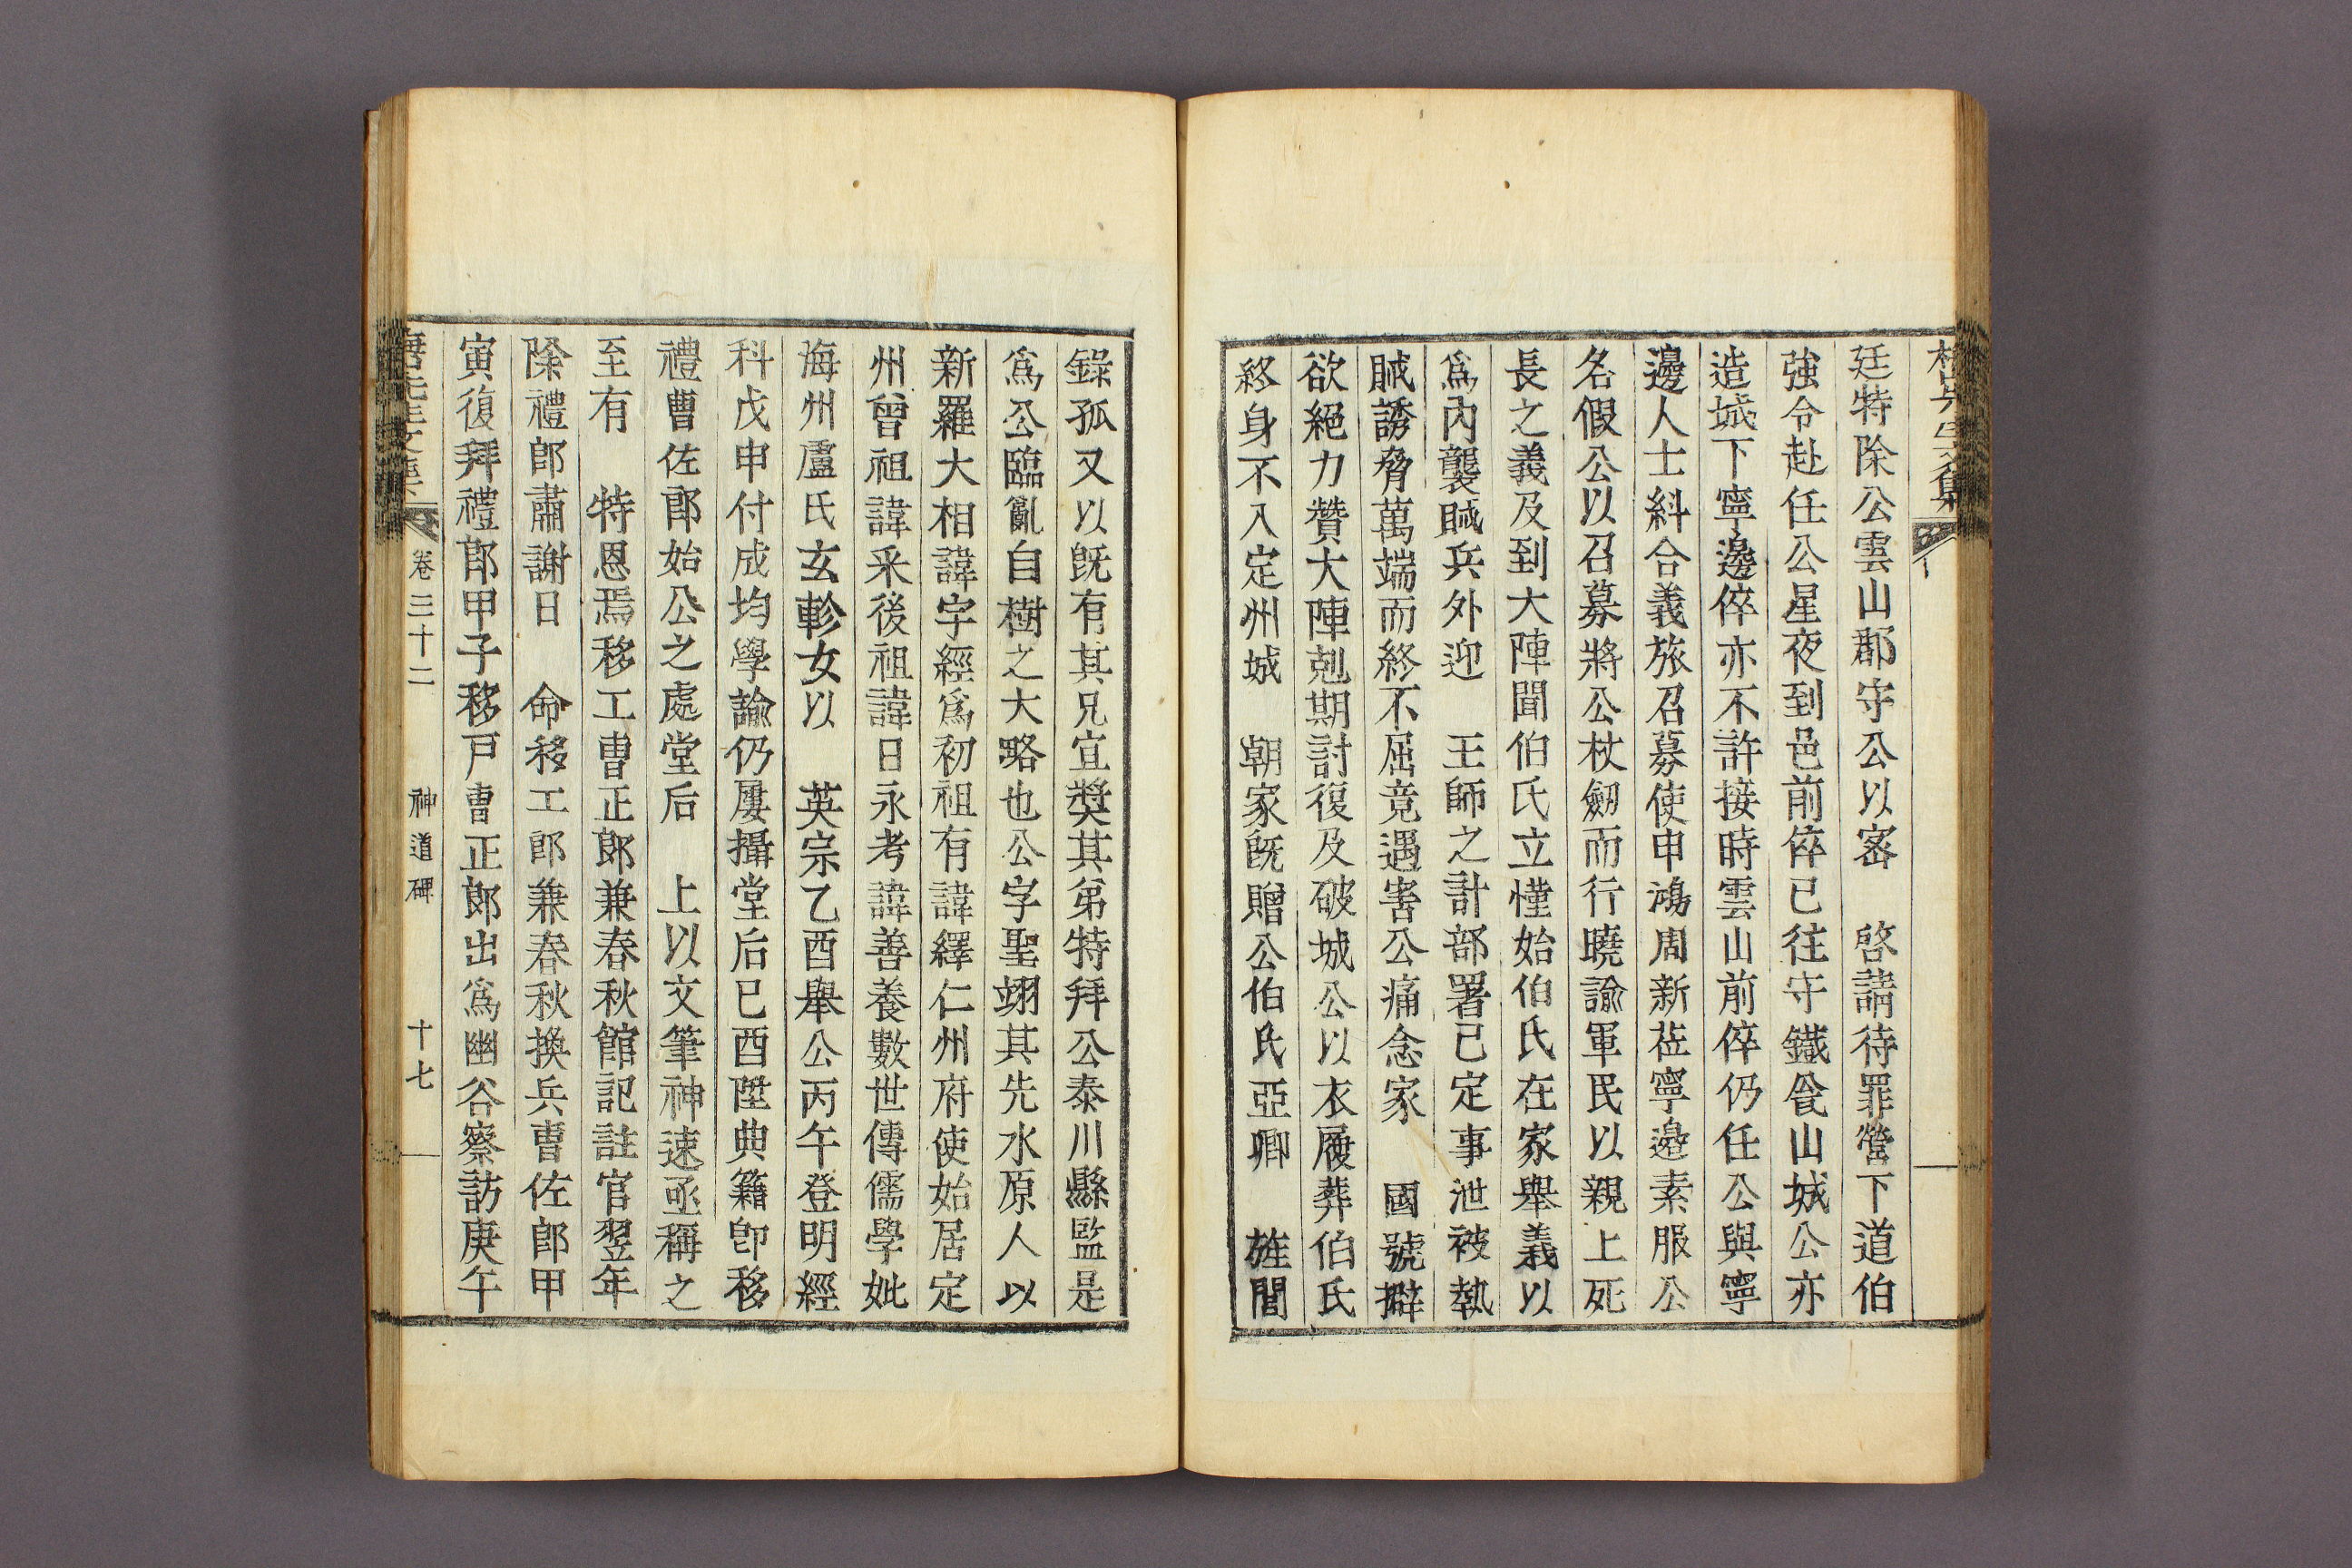 廷特除公雲山郡守公以密 啓請待罪營下道伯
強令赴任公星夜到邑前倅已往守鐵瓮山城公亦
造城下寧邊倅亦不許接時雲山前倅仍任公與寧
邊人士糾合義旅召募使申鴻周新莅寧邉素服公
名假公以召募將公杖劒而行曉諭軍民以親上死
長之義及到大陣聞伯氏立慬始伯氏在家舉義以
爲內襲賊兵外迎 王師之計部署已定事泄被執
賊誘脅萬端而終不屈竟遇害公痛念家 國號擗
欲絕力贊大陣剋期討復及破城公以衣履葬伯氏
終身不入定州城 朝家旣贈公伯氏亞卿 旌閭
錄孤又以旣有其兄宜奬其弟特拜公泰川縣監是
爲公臨亂自樹之大略也公字聖翊其先水原人以
新羅大相諱宇經爲初祖有諱繹仁州府使始居定
州曾祖諱采後祖諱日永考諱善養數世傳儒學妣
海州盧氏玄軫女以 英宗乙酉舉公丙午登明經
科戊申付成均學諭仍屢攝堂后己酉陞典籍卽移
禮曹佐郎始公之處堂后 上以文筆神速亟稱之
至有 特恩焉移工曹正郎兼春秋館記註官翌年
除禮郎肅謝日 命移工郎兼春秋換兵曹佐郎甲
寅復拜禮郎甲子移戸曹正郎出爲幽谷察訪庚午
卷三十二 神道碑 十七